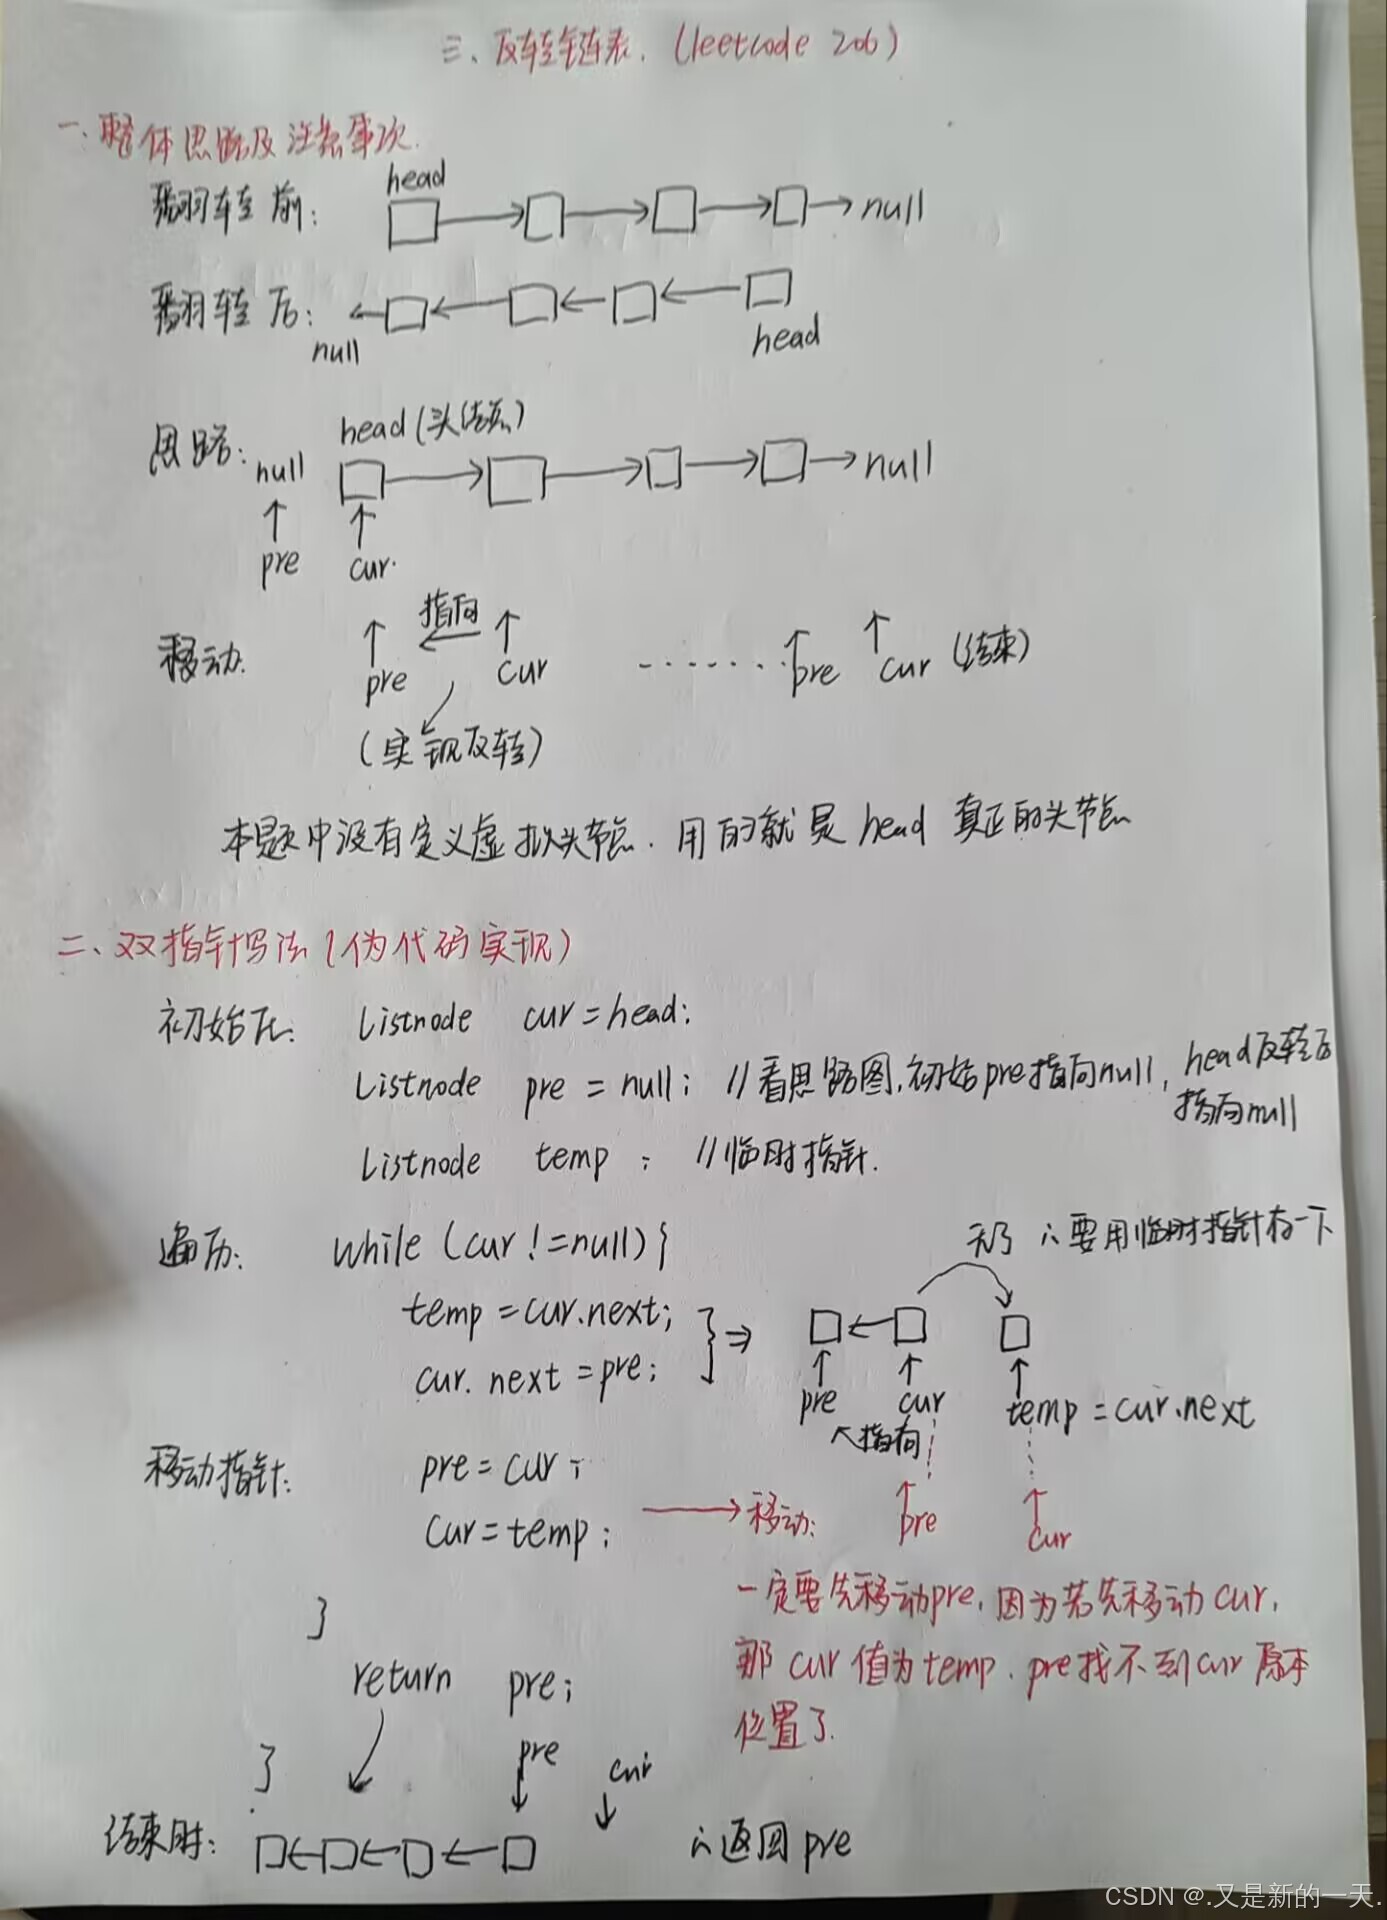 三、反转链表.(leetcode 206)
一、整体思路及注意事项.
翻转前: head → → → → null
翻转后: ← ← ← ←
null head
思路: null head(头结点) → → → → null
↑ ↑
pre cur.
移动. ↑ 指向 ← ↑ ....... ↑ ↑
pre cur pre cur (结束)
(实现反转)
本题中没有定义虚拟头节点. 用的就是head 真正的头节点
二、双指针写法(伪代码实现)
初始化: Listnode cur=head;
Listnode pre = null; //看思路图,初始pre指向null, head反转后
指向null
Listnode temp ; //临时指针.
遍历: while (cur !=null){ 无了 ∴要用临时指针存一下
temp =cur.next;
cur. next =pre; } ⇒
pre cur temp = cur.next
指向
移动指针: pre=cur ;
cur=temp; → 移动: pre cur
一定要先移动pre, 因为若先移动cur,
那 cur 值为temp. pre找不到cur原本
位置了.
}
return pre;
} pre cur
结束时: ← ← ← ∴返回 pre
CSDN @.又是新的一天.